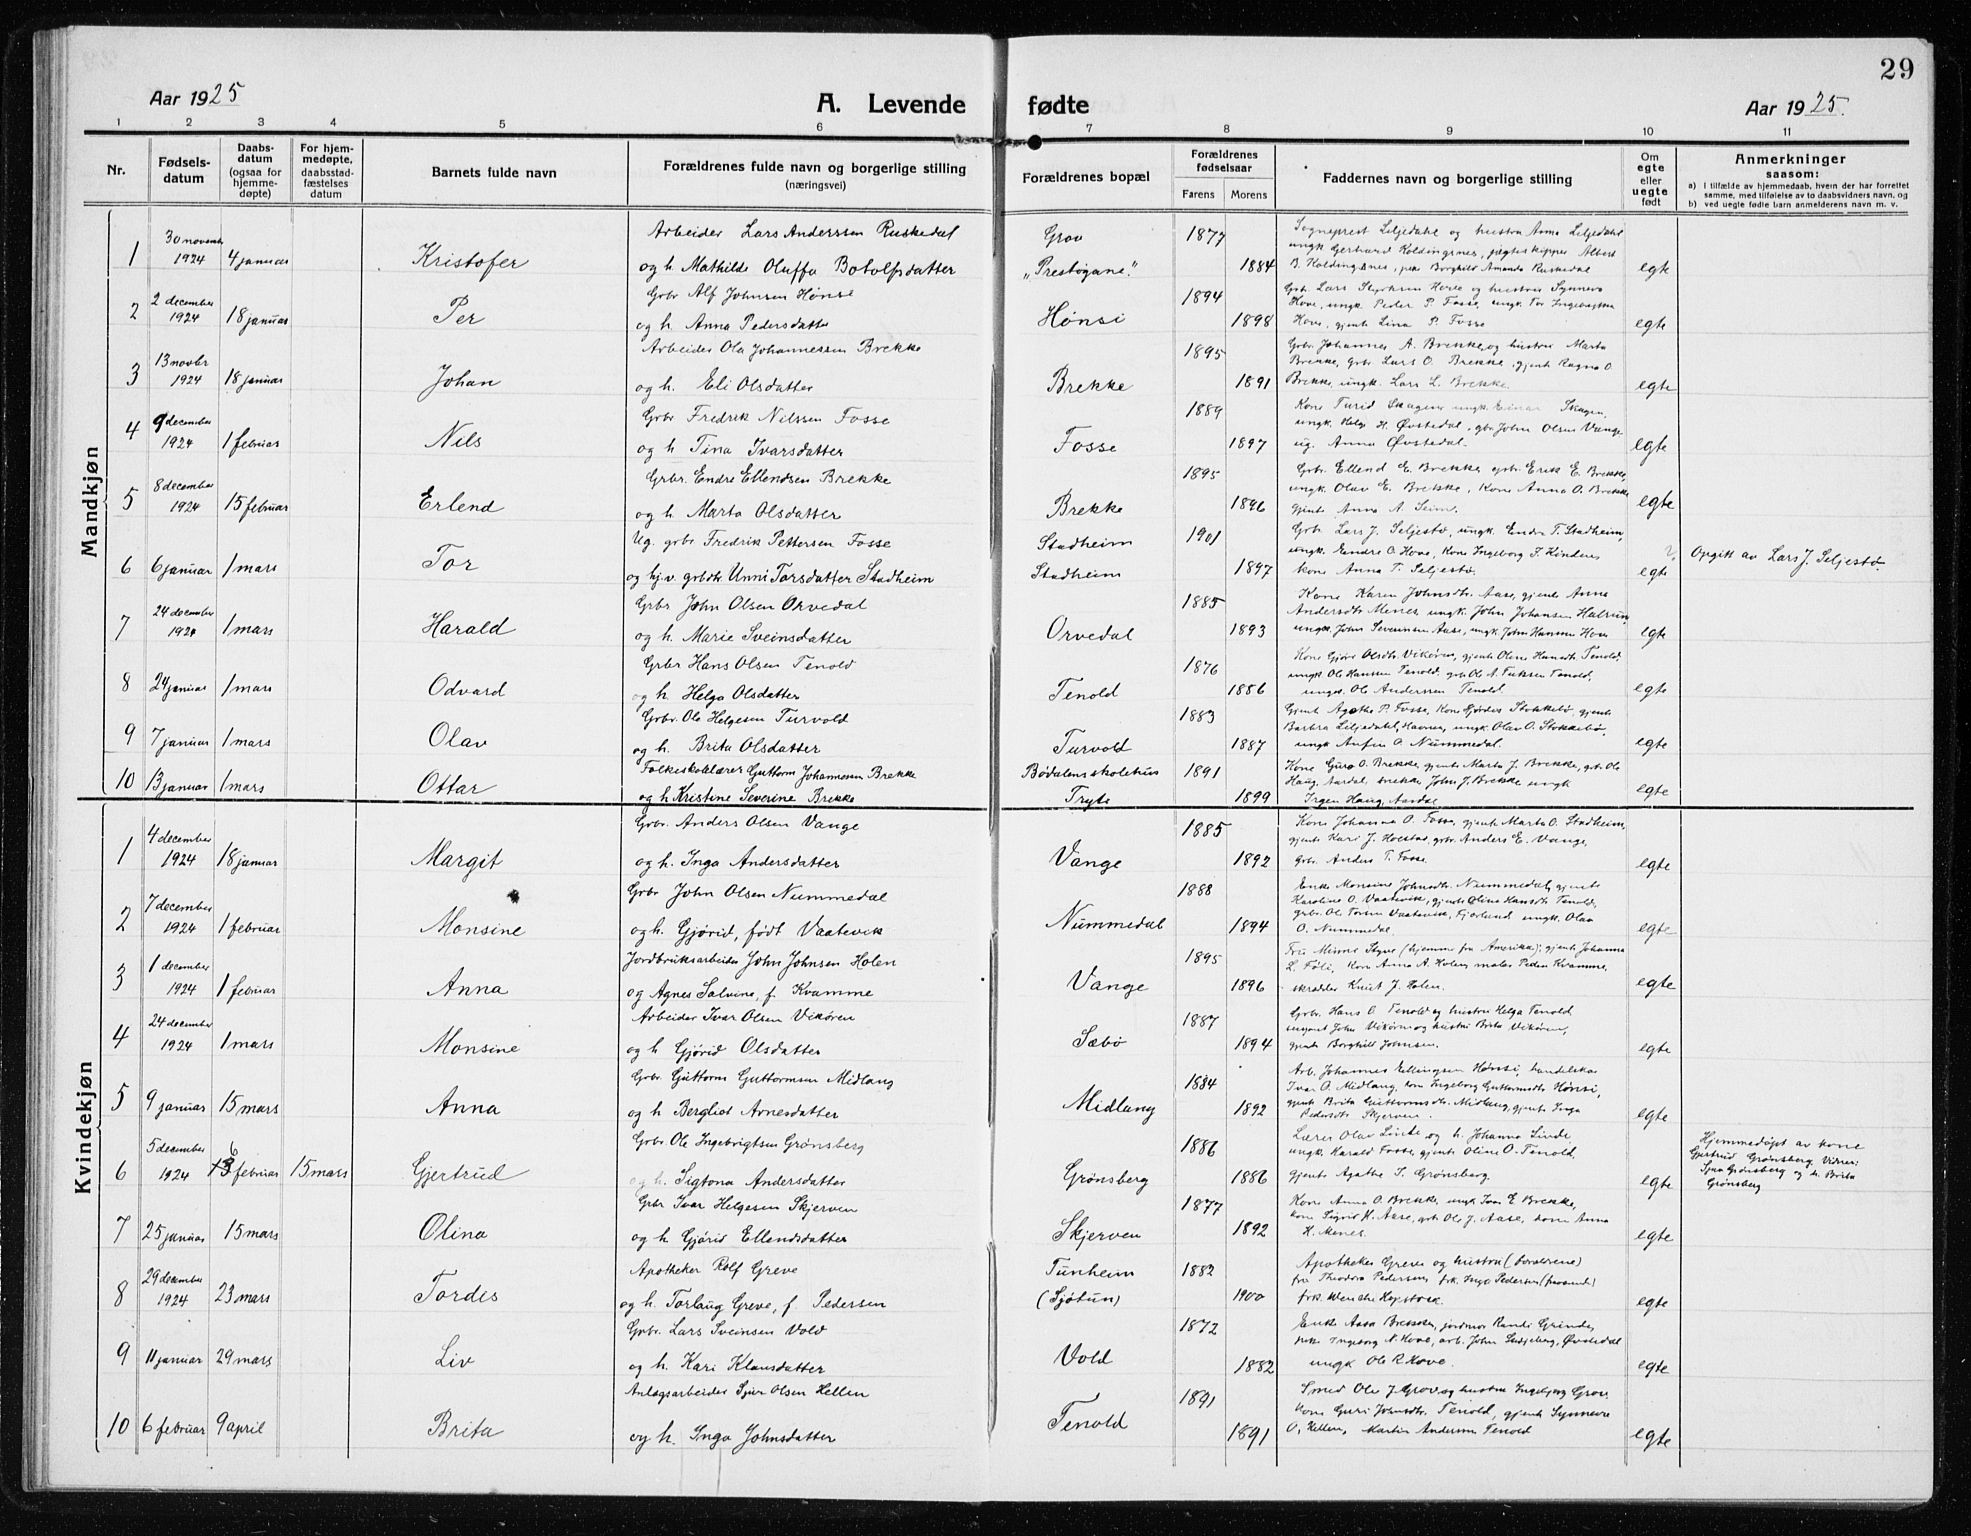 29
Aar 1925
A. Levende fødte
Aar 1925.
1 2 3 4 5 6 7 8 9 10 11
Nr.
Fødsels-
datum
Daabs-
datum
(ogsaa for
hjemme-
døpte)
For hjem-
medøpte,
daabsstad-
fæstelses
datum
Barnets fulde navn
Forældrenes fulde navn og borgerlige stilling
(næringsvei)
Forældrenes bopæl
Forældrenes
fødselsaar
Farens Morens
Faddernes navn og borgerlige stilling
Om
egte
eller
uegte
født
Anmerkninger
saasom:
a) I tilfælde av hjemmedaab, hvem der har forrettet
samme, med tilføielse av to daabsvidners navn, og
b) ved uegte fødte barn anmelderens navn m. v.
Mandkjøn
1 30 november 1924 4 januar Kristofer
Arbeider Lars Anderssen Ruskedal
og h. Mathilde Oluffa Botolfsdatter
Grov
"Prestøgane." 1877 1884
Sogneprest Liljedahl og hustru Anna Liljedahl
egte
2 2 december 1924 18 januar Per
Grbr Alf Johnsen Hønsi
og h. Anna Pedersdatter
Hønsi 1894 1898
Hove, ungk. Peder P. Fosse, ungk. Tor Ingebrigtsen
Hove, gjente Lina P. Fosse
egte
3 13 novbr 1924 18 januar Johan
Arbeider Ola Johannessen Brekke
og h. Eli Olsdatter
Brekke 1895 1891
Grbr. Johannes A. Brekke, og hustru Marta
Brekke, grbr. Lars O. Brekke, gjente Ragna O.
Brekke, ungk. Lars L. Brekke.
egte
4 9 december 1924 1 februar Nils
Grbr Fredrik Nilssen Fosse
og h. Tina Ivarsdatter
Fosse 1889 1897
Kone Turid Skagen, ungk. Einar Skagen,
ungk. Helge H. Øvstedal, gbr. John Olsen Vange
ug. Anna Øvstedal.
egte
5 8 december 1924 15 februar Erlend
Grbr. Endre Ellendsen Brekke
og h. Marta Olsdatter
Brekke 1895 1896
Grbr. Ellend E. Brekke, grbr. Erik E. Brekke,
ungk. Olav E. Brekke, Kone Anna O. Brekke
gjente Anna A. Seim.
egte
6 6 januar 1 mars Tor
Ug. grbr Fredrik Pettersen Fosse
og hj.v. grbdtr Unni Torsdatter Stadheim
Stadheim
Stadheim 1901 1897
Grb. Lars J. Seljestø, ungk. Endre T. Stadheim,
ungk. Endre O. Hove, Kone Ingeborg S. Hønderes
kone Anna T. Seljestø.
egte
Opgitt av Lars J. Seljestø.
7 24 december 1924 1 mars Harald
Grbr John Olsen Orvedal
og h. Marie Sveinsdatter
Orvedal 1885 1893
Kone Karen Johnsdtr. Aase, gjente Anna
Andersdtr Menes, ungk. John Johansen Halrun,
ungk. John Severinsen Aase, ungk. John Hansen Hove
egte
8 24 januar 1 mars Odvard
Grbr Hans Olsen Tenold
og h. Helga Olsdatter
Tenold 1876 1886
Kone Gjøri Olsdtr. Vikøren, gjente Oline Hansdtr. Tenold,
ungk. Ole Hanssen Tenold, grb. Ole A. Eriksen Tenold,
ungk. Ole Anderssen Tenold.
egte
9 7 januar 1 mars Olav
Grbr. Ole Helgesen Turvold
og h. Brita Olsdatter
Turvold 1883 1887
Gjente Agathe P. Fosse, Kone Gjørdis Stokkebø, gjente
Barbra Liljedahl, Havnen, ungk. Olav O. Stokkebø,
ungk Anfin O. Nummedal.
egte
10 13 januar 1 mars Ottar
Folkeskolelærer Guttorm Johannesen Brekke
og h Kristine Severine Brekke
Bødalens skolehus
Tryte 1891 1899
Kone Guro O. Brekke, gjente Marta J. Brekke, grb. Ole
Haug, Aardal, snekker John J. Brekke ungk
Irgen Haug, Aardal
egte
Kvindekjøn
1 4 december 1924 18 januar Margit
Grbr. Anders Olsen Vange
og h. Inga Andersdatter
Vange 1885 1892
Kone Johanna O. Fosse, gjente Marta O. Stadheim,
gjente Kari J. Holstad, grbr. Anders E. Vange,
Grbr. Anders T. Fosse.
egte
2 7 december 1924 1 februar Monsine
Grbr John Olsen Nummedal
og h. Gjørid, født Vaatevik
Nummedal 1888 1894
Enke Monsine Johnsdtr. Nummedal, gjente
Karoline O. Vaatevik, gjente Olina Hansdtr. Tenold,
grbr. Ole Torsen Vaatevik, Fjærland ungk. Olav
O. Nummedal.
egte
3 1 december 1924 1 februar Anna
Jordbruksarbeider John Johnsen Holen
og Agnes Salvine, f. Kvamme
Vange 1895 1896
Fru Minnie Styve (hjemme fra Amerika); gjente Johanna
L. Føli, Kone Anna A. Holen, maler Peder Kvamme,
skrædder Knut J. Holen.
egte
4 24 december 1924 1 mars Monsine
Arbeider Ivar Olsen Vikøren
og h Gjørid Olsdatter
Sæbø 1887 1894
Grbr. Hans O. Tenold og hustru Helga Tenold
sergeant John Vikøren og hustru Brita Vikøren,
gjente Borghild Johnsen.
egte
5 9 januar 15 mars Anna
Grbr. Guttorm Guttormsen Midlang
og h Bergliot Arnesdatter
Midlang 1884 1892
Arb. Johannes Ellingsen Hønsi, handelskar
Ivar O. Midlang, kone Ingeborg Guttormsdtr. Hønsi,
gjente Brita Guttormsdtr. Midlang, gjente Inga
Pedersdtr. Skjerven.
egte
6 5 december 1924 6 februar 15 mars Gjertrud
Grbr. Ole Ingebrigtsen Grønsberg
og h. Sigtona Andersdatter
Grønsberg 1886 1886
Lærer Olav Linde og h. Johanna Linde,
ungk. Harald Fosse, gjente Oline O. Tenold,
gjente Agathe S. Grønsberg.
egte
Hjemmedøpt av kone
Gjertrud Grønsberg. Vidner:
Grønsberg og h. Brita
Grønsberg
7 25 januar 15 mars Olina
Grbr Ivar Helgesen Skjerven
og h Gjørid Ellendsdatter
Skjerven 1877 1892
Kone Anna O. Brekke, ungk Ivar E Brekke,
kone Sigrid H. Aase, grb. Ole J. Aase, kone Anna
H. Menes.
egte
8 29 december 1924 23 mars Tordis
Apotheker Rolf Greve
og h. Torlaug Greve, f. Pedersen
Tunheim
(Sjøtun) 1882 1900
Apotheker Greve og hustru (forældrene)
fru Theodora Pedersen, frk. Inga Pedersen
frk. Wenche
egte
9 11 januar 29 mars Liv
Grbr. Lars Sveinsen Vold
og h. Kari Klausdatter
Vold 1872 1882
Enke Aasa Brekke, jordmor Randi Grinde,
pike Ingeborg N. Hove, arb. John Ludjeberg, Øvstedal
ungk Ole R Hove.
egte
10 6 februar 9 april Brita
Anlægsarbeider Sjur Olsen Hellen
og h. Inga Johnsdatter
Tenold 1891 1891
Smed Ole J. Grov og hustru Ingebjørg Grov,
kone Guri Johnsdtr. Tenold, gjente Synneve
O. Hellen, Martin Andersen Tenold
egte